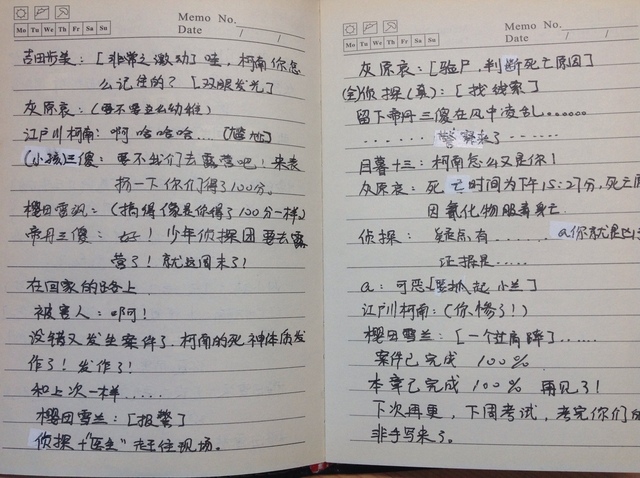 Memo No.
Mo Tu We Th Fr Sa Su
Date / /
吉田步美：[非常之激动] 哇，柯南你怎
么记住的？[双眼发光]
灰原哀：(要不要这么幼稚)
江户川柯南：啊哈哈哈...[尴尬]
(小孩)三傻：要不我们去露营吧！来表
扬一下你们得了100分。
樱田雪兰：(搞得像是你得了100分一样)
帝丹三傻：好！少年侦探团要去露
营了！就这周末了！
在回家的路上
被害人：啊！
没错又发生案件了.柯南的死神体质发
作了！发作了！
和上次一样.....
樱田雪兰：[报警]
侦探+"医生"赶往现场。
Memo No.
Mo Tu We Th Fr Sa Su
Date / /
灰原哀：[验尸，判断死亡原因]
(全)侦探(真)：[找线索]
留下帝丹三傻在风中凌乱......
......警察来了......
目暮十三：柯南怎么又是你！
灰原哀：死亡时间为下午15:27分，死亡原
因氰化物服毒身亡.
侦探：疑点有.......a你就是凶
证据是.....
a：可恶[要抓起小兰]
江户川柯南：(你惨了！)
樱田雪兰：[一个过肩摔].....
案件已完成 100%
本章已完成 100% 再见了！
下次再更，下周考试，考完你们
非手写来了。